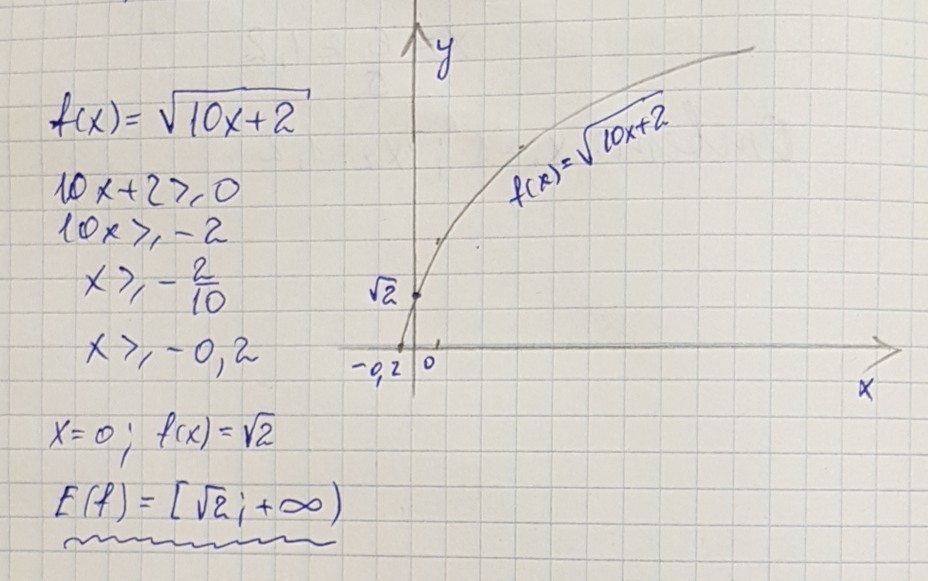 f(x) = √(10x+2)
10x+2 ⩾ 0
10x ⩾ -2
x ⩾ -2/10
x ⩾ -0,2
x=0; f(x)=√2
E(f) = [√2; +∞)
y
f(x)=√(10x+2)
√2
-0,2 0
x